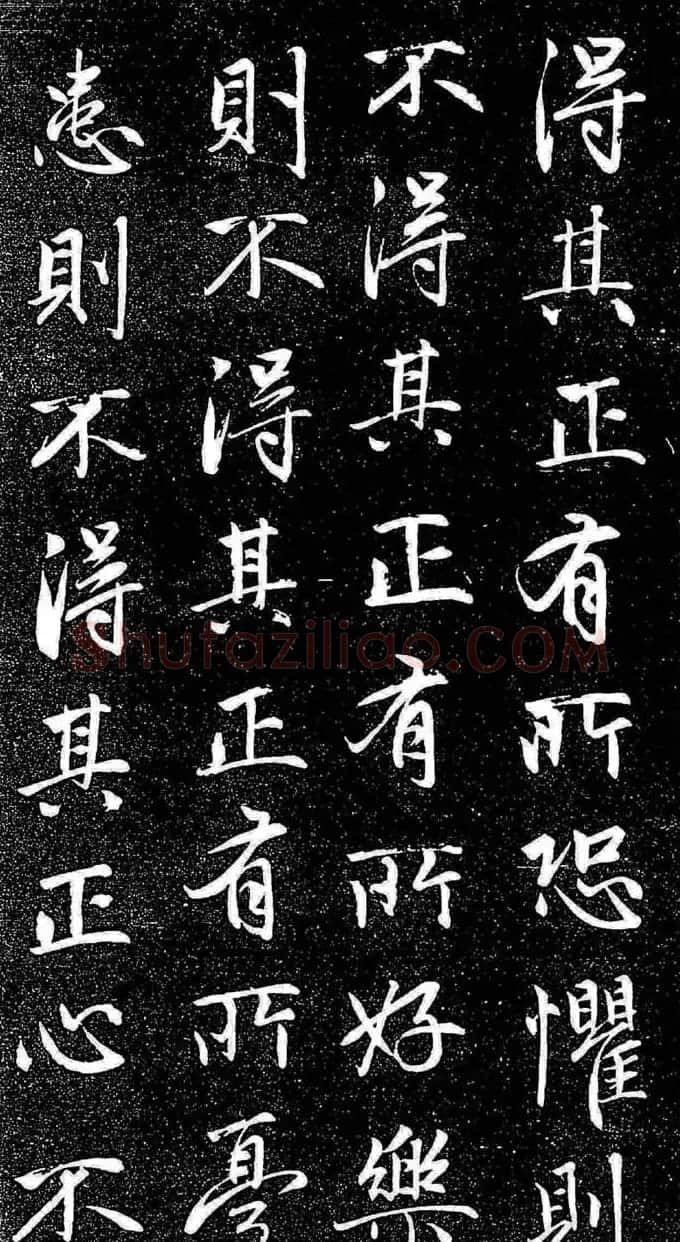 得其正有所恐懼則
不得其正有所好樂
則不得其正有所憂
患則不得其正心不
Shufaziliao.COM